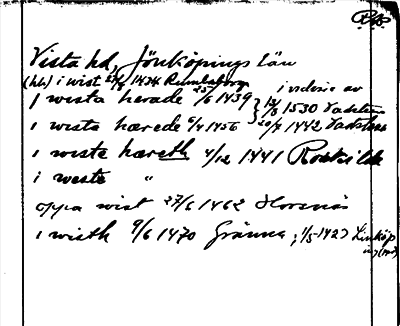 Vista hd, Jönköpings län
(hs) i wist 27/8 1424 Rumlaborg
i wista herade 25/6 1439 } i vidisse av 13/8 1530 Vadstena
i wista hærede 5/4 1456 20/7 1442 Vadstena
i wiste hæreth 4/12 1441 Roskilde
i weste "
oppa wist 27/6 1462
i wisth 9/6 1470 Gränna; 1/5 1427 Linköp